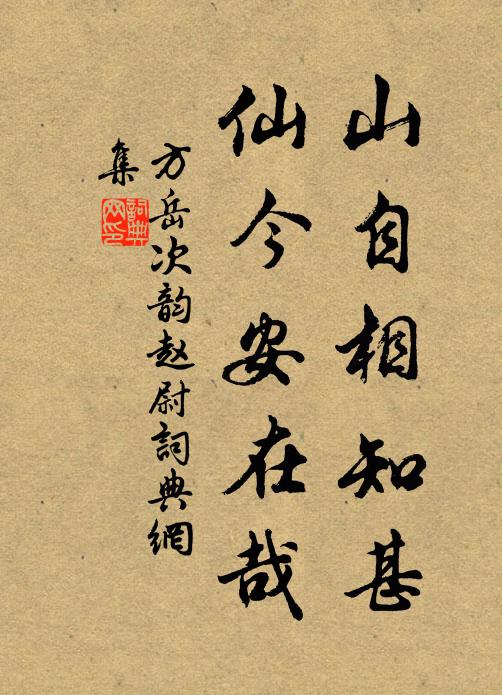 山自相知甚
仙今安在哉
方岳次韵赵尉詞典網
集
詞典
网印